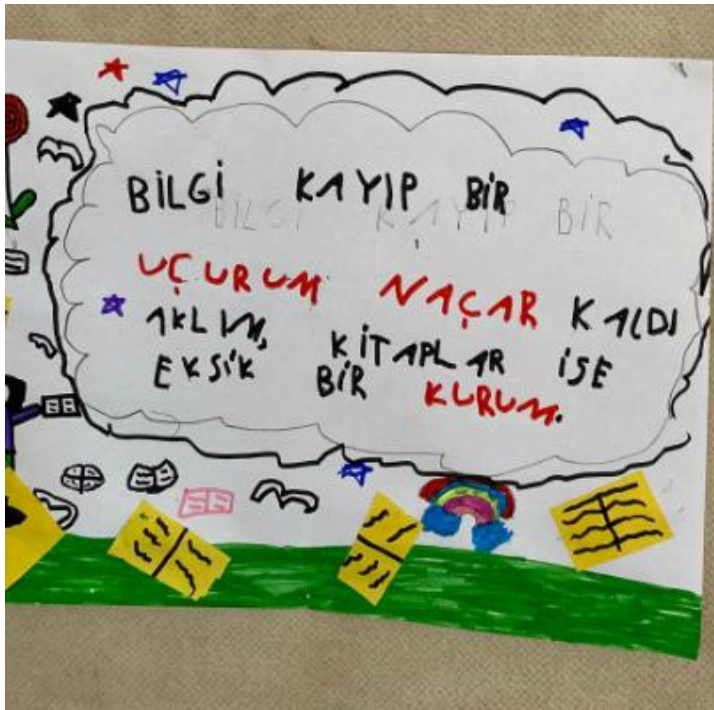 BİLGİ KAYIP BİR
BİLGİ KAYIP BİR
UÇURUM NAÇAR KALDI
AKLIM, KİTAPLAR İSE
EKSİK BİR KURUM.